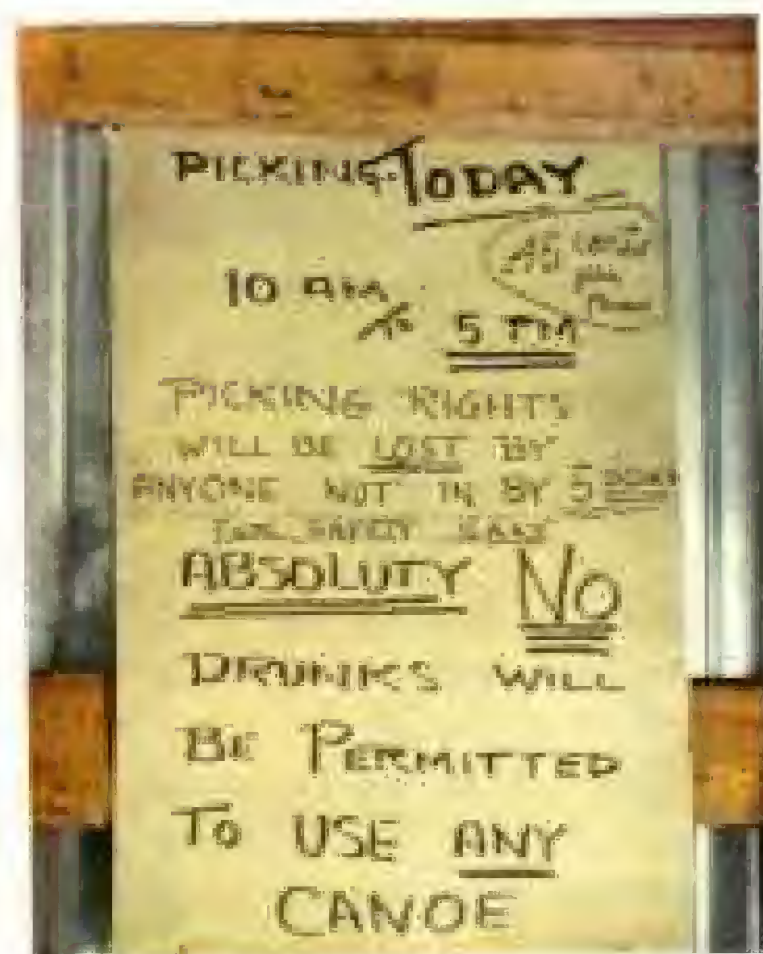 PICKING TODAY
45
10 AM
TO 5 PM
PICKING RIGHTS
WILL BE LOST BY
ANYONE NOT IN BY 5
SAFETY
ABSOLUTY NO
DRUNKS WILL
BE PERMITTED
TO USE ANY
CANOE